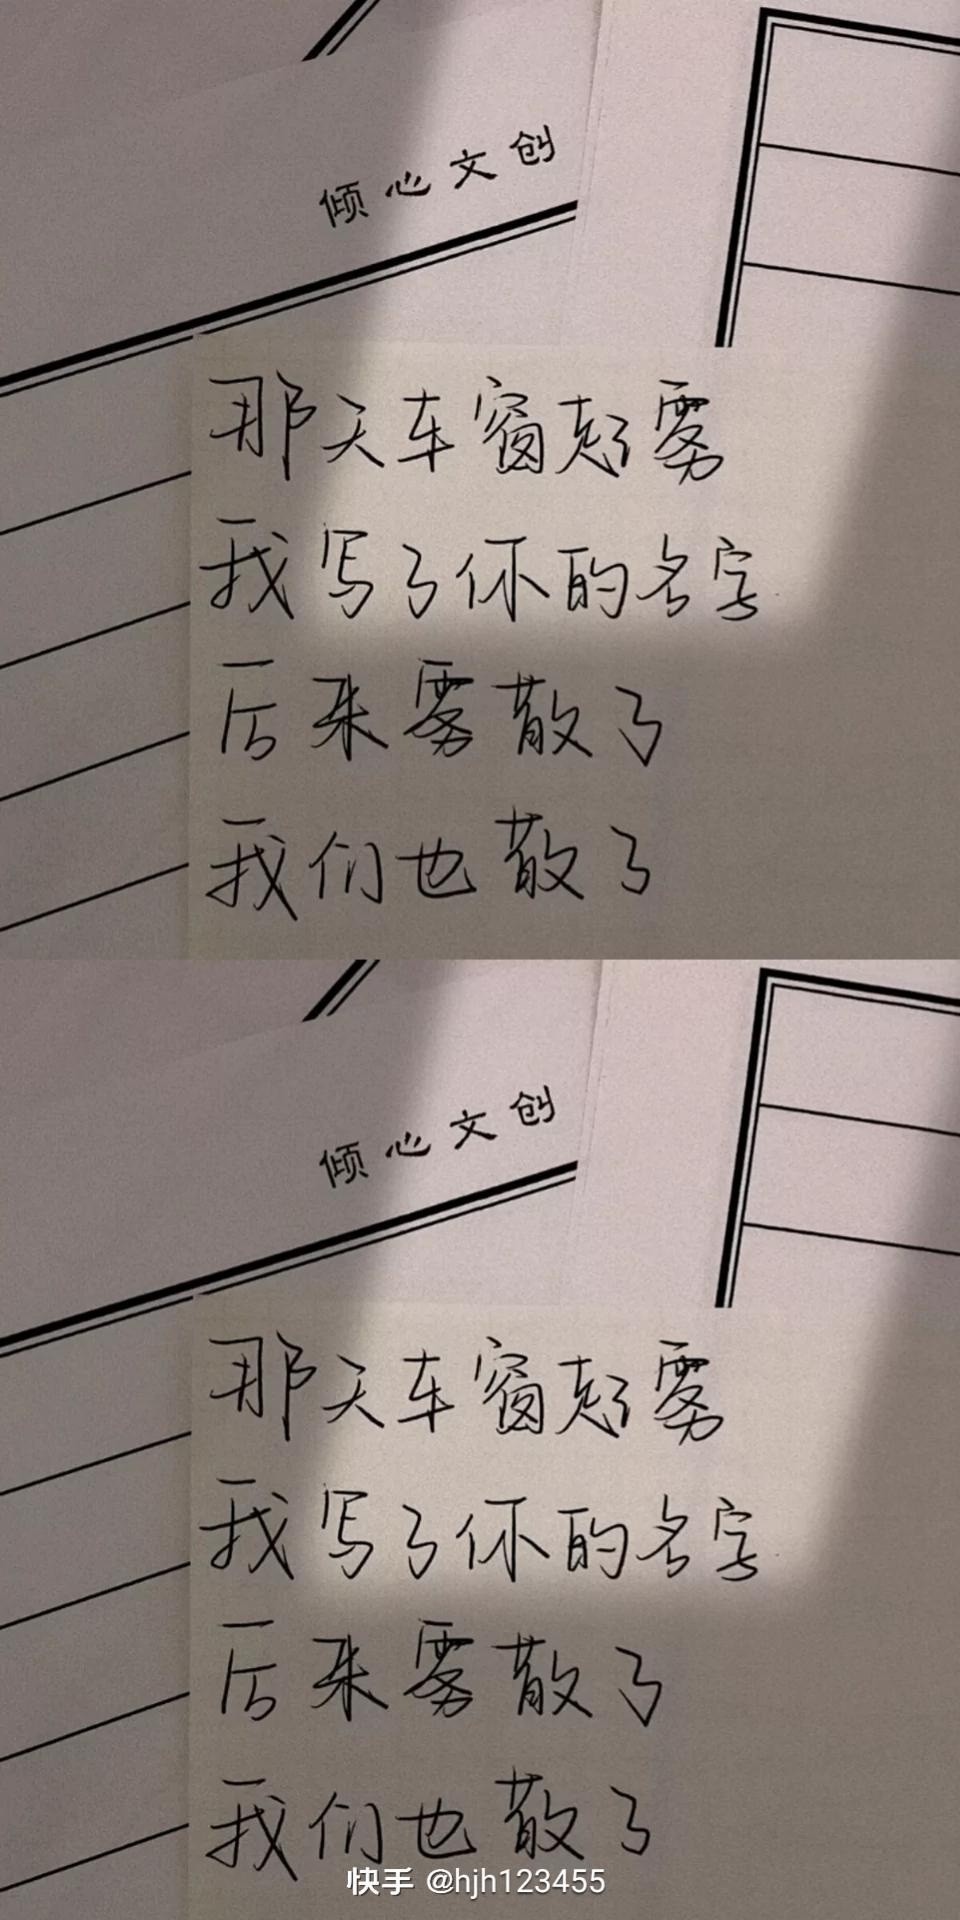 倾心文创
那天车窗起雾
我写了你的名字
后来雾散了
我们也散了
倾心文创
那天车窗起雾
我写了你的名字
后来雾散了
我们也散了
快手 @hjh123455